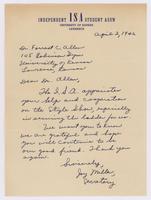 INDEPENDENT ISA STUDENT ASSN
UNIVERSITY OF KANSAS
LAWRENCE
April 2, 1942
Dr. Forrest C. Allen
105 Robinson Gym
University of Kansas
Lawrence, Kansas
Dear Dr. Allen,
The I.S.A. appreciates
your help and cooperation
on the Style Show, especially
in securing the ladder for us.
We want you to know
we are grateful and hope
you will continue to be
our good friend. Thank you
again.
Sincerely,
Joy Miller,
Secretary